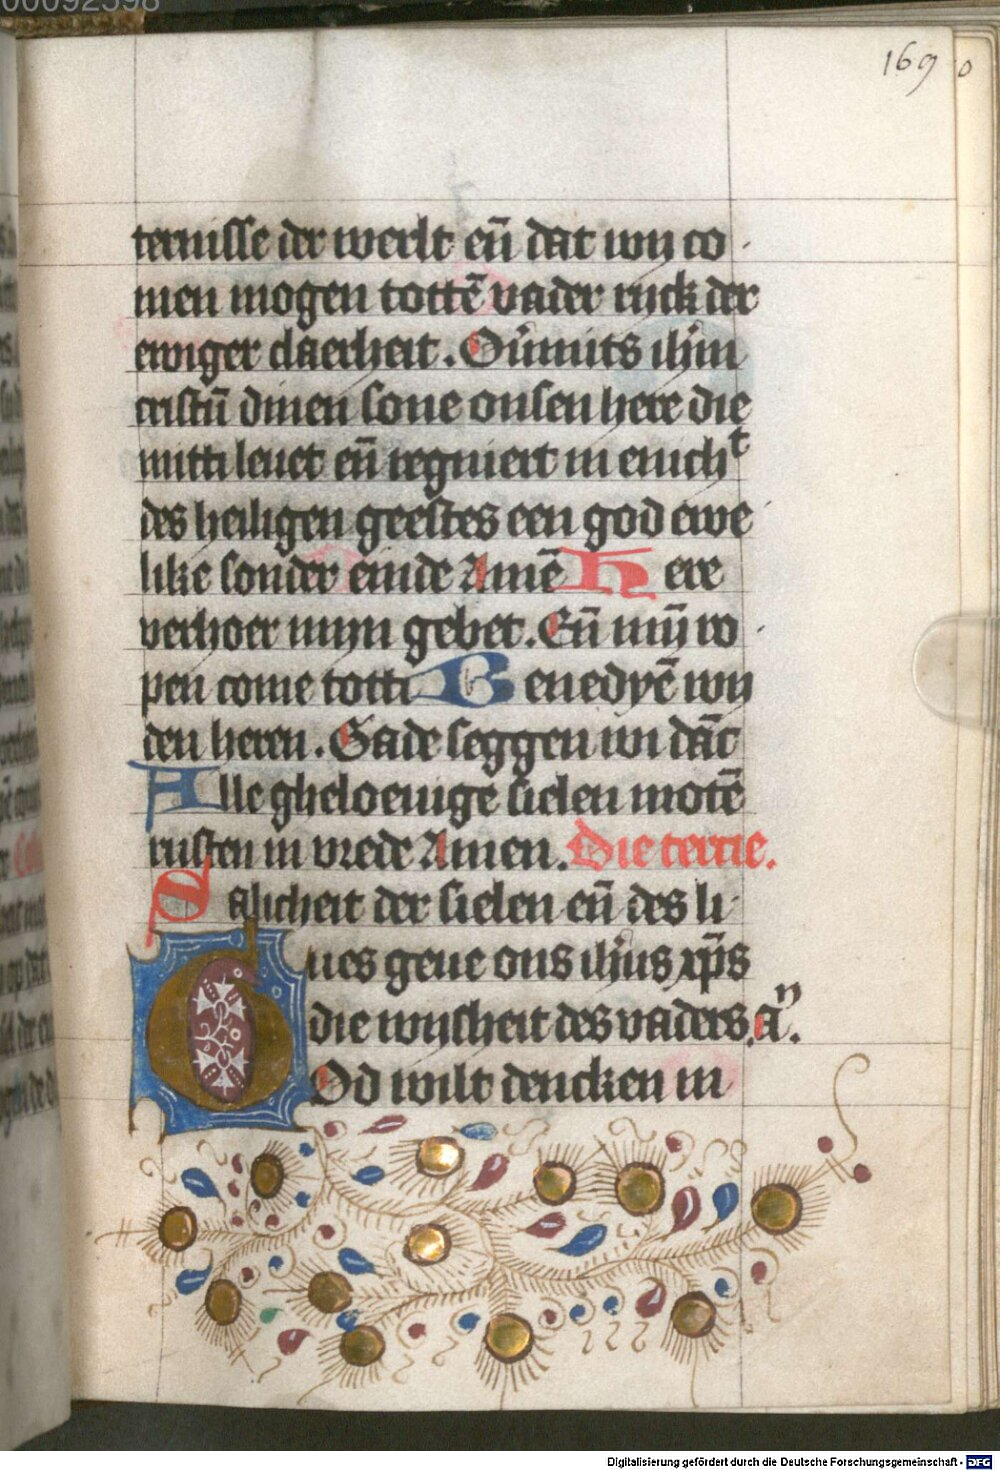 00092598
169
ternisse der werlt en̄ dat wy co
men mogen tottē vader ryck der
ewiger claerheit. Ou̕mits ih̄m
cristū dinen sone onsen here die
mitti leuet en̄ regniert in enichᵗ
des heiligen geestes een god ewe
like sonder einde Amē Here
verhoer myn gebet. En̄ mȳ ro
pen come totti Benedyē wy
den heren. Gade seggen wi dāc
Alle gheloeuige sielen motē
rusten in vrede Amen. Die tertie.
Salicheit der sielen en̄ des li
ues geue ons ih̄us xp̄s
die wysheit des vaders. aⁿ.
God wilt dencken in
Digitalisierung gefördert durch die Deutsche Forschungsgemeinschaft - DFG